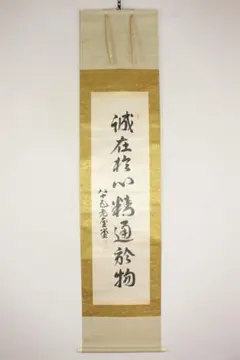 誠在於心精通於物